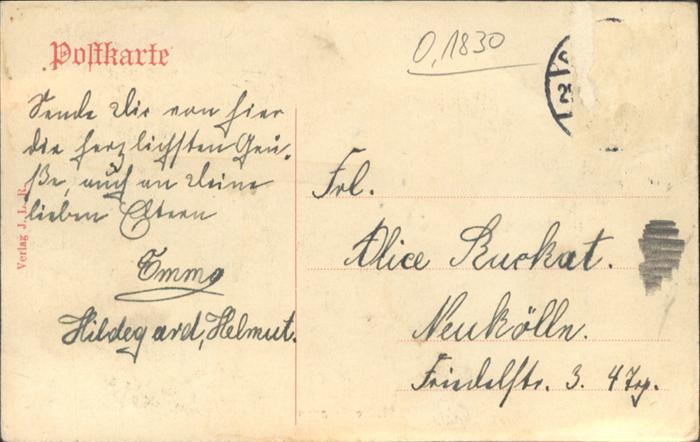 Postkarte
0,1830
Sende Dir von hier
die herzlichsten Grü-
ße, auch an Deine
lieben Eltern
Emma
Hildegard, Helmut.
Verlag J. L. R.
Frl.
Alice Ruckat.
Neukölln.
Friedelstr. 3. 4Trp.